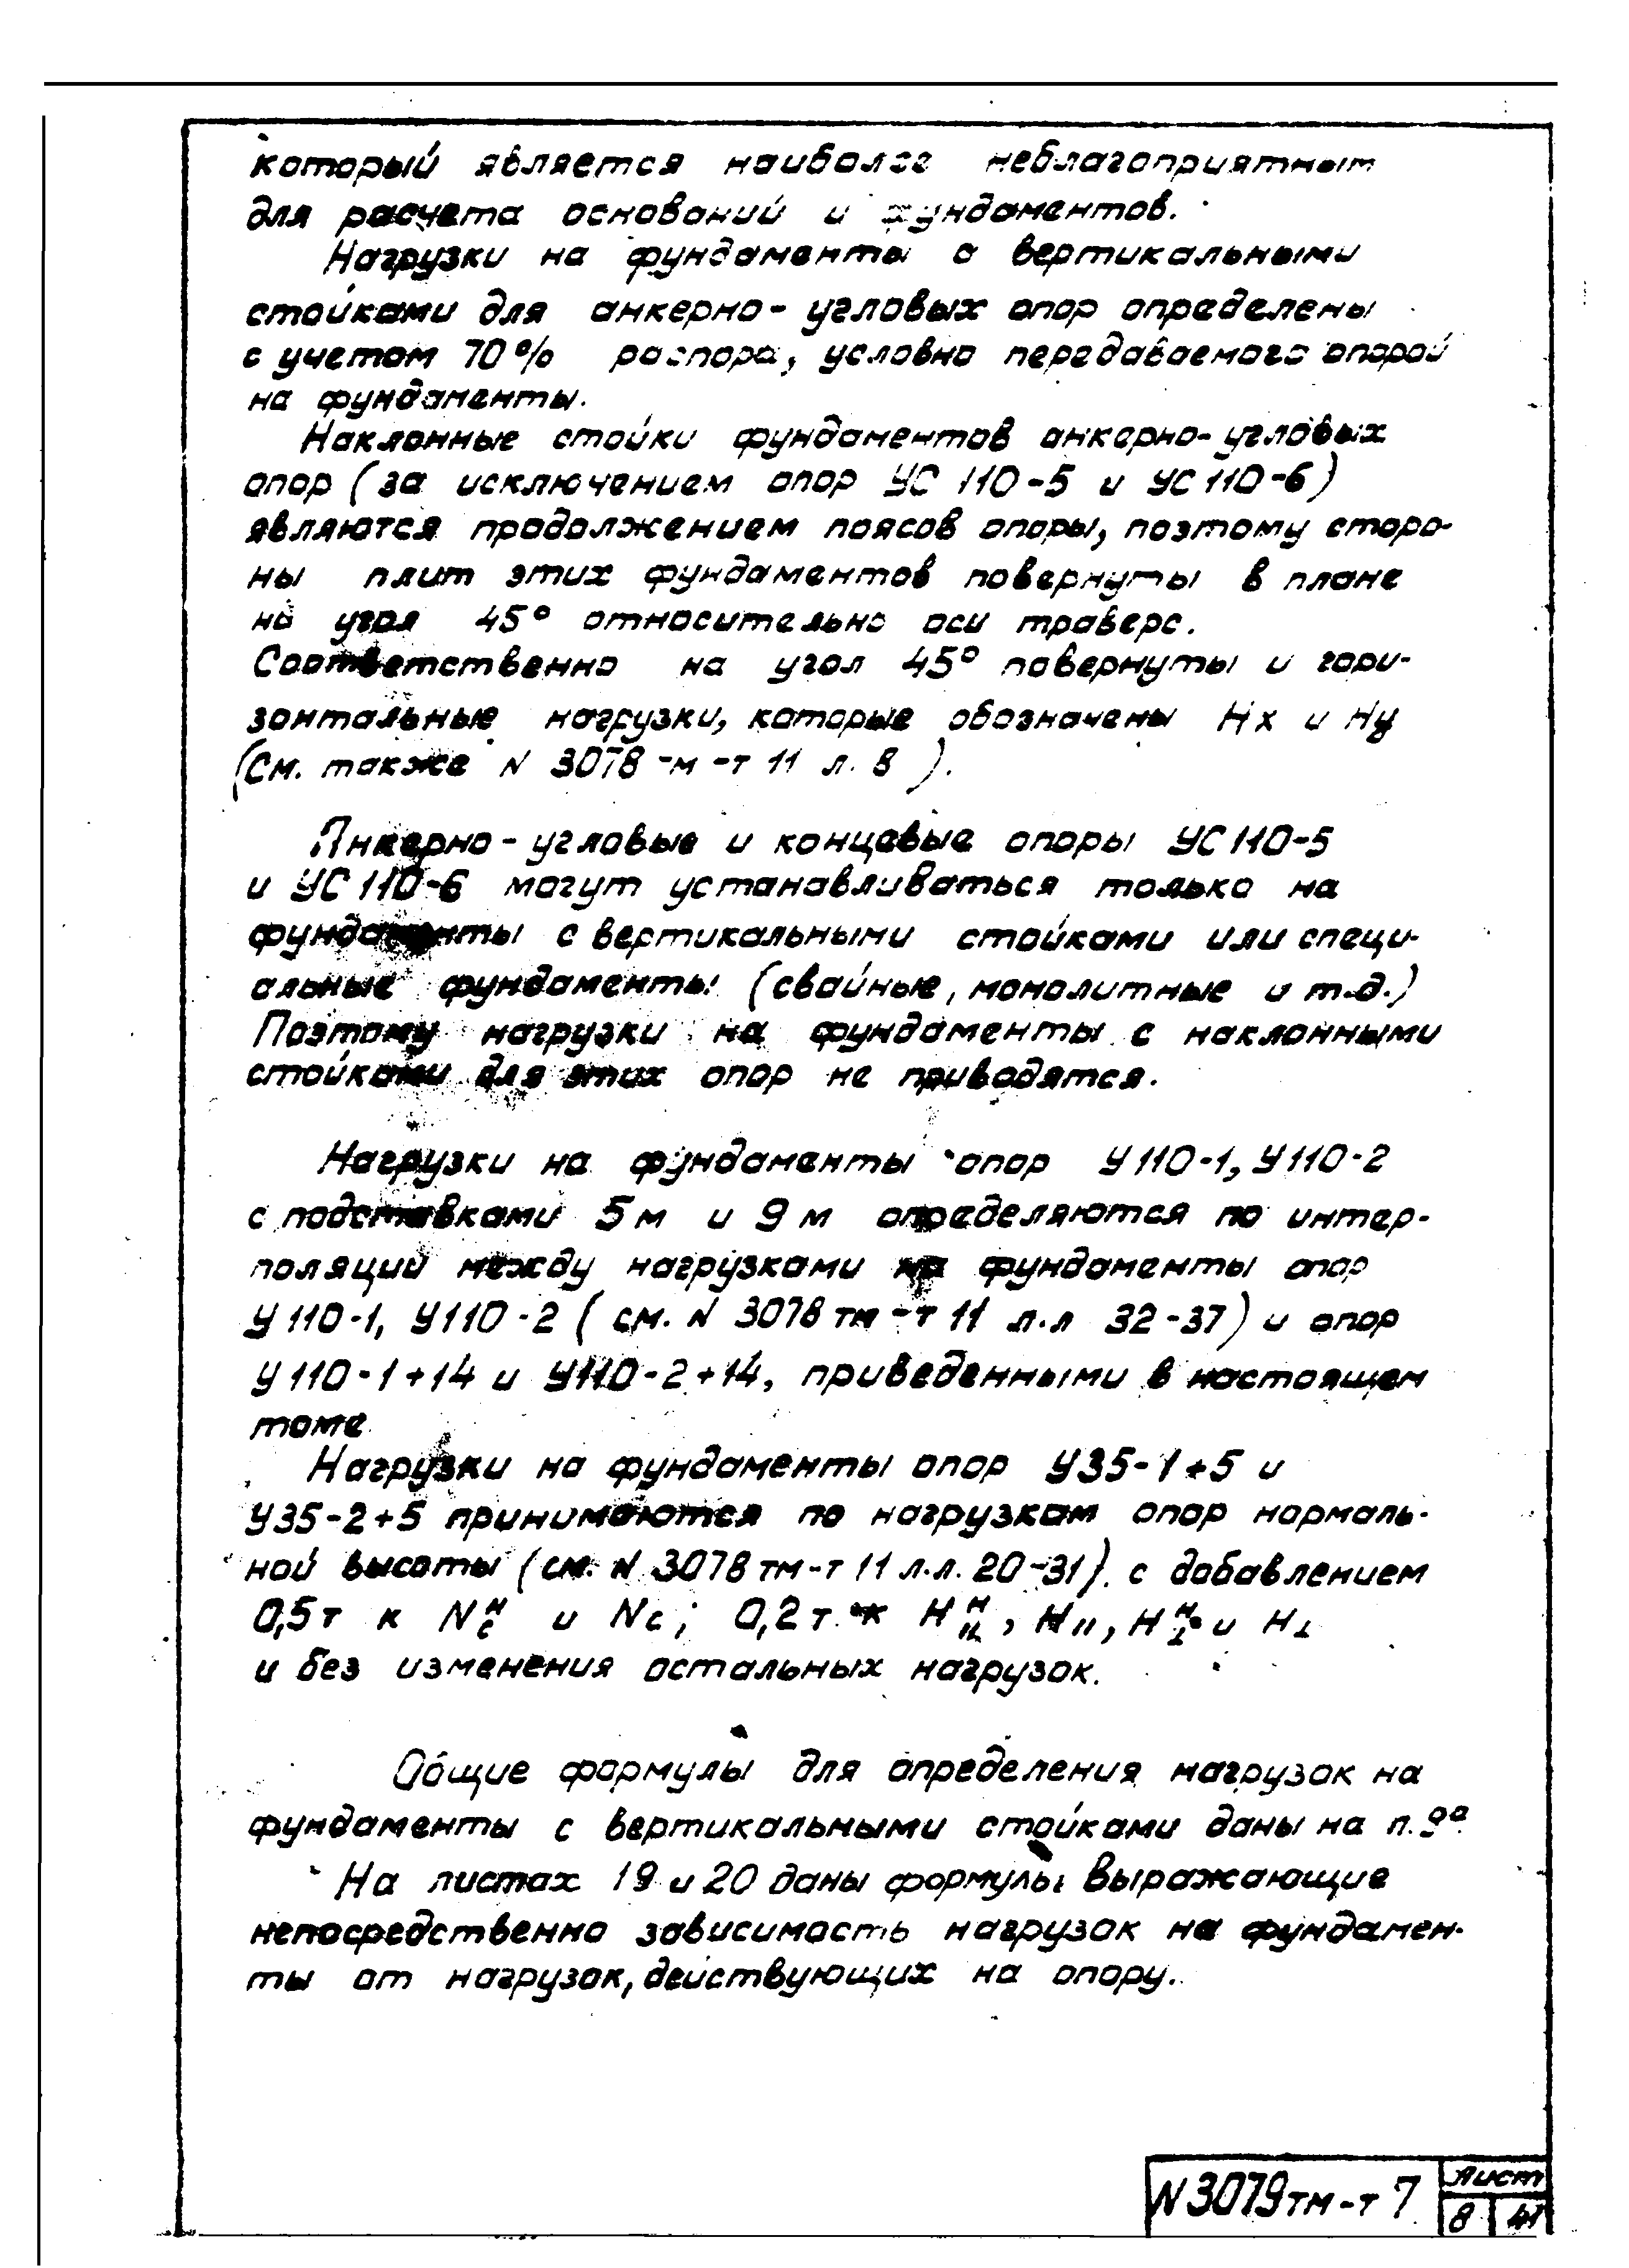 который является наиболее неблагоприятным
для расчета оснований и фундаментов.
Нагрузки на фундаменты с вертикальными
стойками для анкерно-угловых опор определены
с учетом 70% распора, условно передаваемого опорой
на фундаменты.
Наклонные стойки фундаментов анкерно-угловых
опор (за исключением опор УС 110-5 и УС 110-6)
являются продолжением поясов опоры, поэтому сторо-
ны плит этих фундаментов повернуты в плане
на угол 45° относительно оси траверс.
Соответственно на угол 45° повернуты и гори-
зонтальные нагрузки, которые обозначены Нх и Ну
(См. также N 3078-м-т 11 л. 8).
Анкерно-угловые и концевые опоры УС 110-5
и УС 110-6 могут устанавливаться только на
фундаменты с вертикальными стойками или специ-
альные фундаменты (свайные, монолитные и т.д.)
Поэтому нагрузки на фундаменты с наклонными
стойками для этих опор не приводятся.
Нагрузки на фундаменты опор У 110-1, У 110-2
с подставками 5 м и 9 м определяются по интер-
поляций между нагрузками на фундаменты опор
У 110-1, У110-2 (см. N 3078 тм-т 11 л.л 32-37) и опор
У 110-1+14 и У110-2+14, приведенными в настоящем
томе
Нагрузки на фундаменты опор У35-1+5 и
У35-2+5 принимаются по нагрузкам опор нормаль-
ной высоты (см. N 3078 тм-т 11 л.л. 20-31). с добавлением
0,5т к Nᴴс и Nс; 0,2т к Нᴴ॥, Н॥, Нᴴ⊥ и Н⊥
и без изменения остальных нагрузок.
Общие формулы для определения нагрузок на
фундаменты с вертикальными стойками даны на л. 9ª
На листах 19 и 20 даны формулы выражающие
непосредственно зависимость нагрузок на фундамен-
ты от нагрузок, действующих на опору.
N 3079тм-т 7
Лист
8